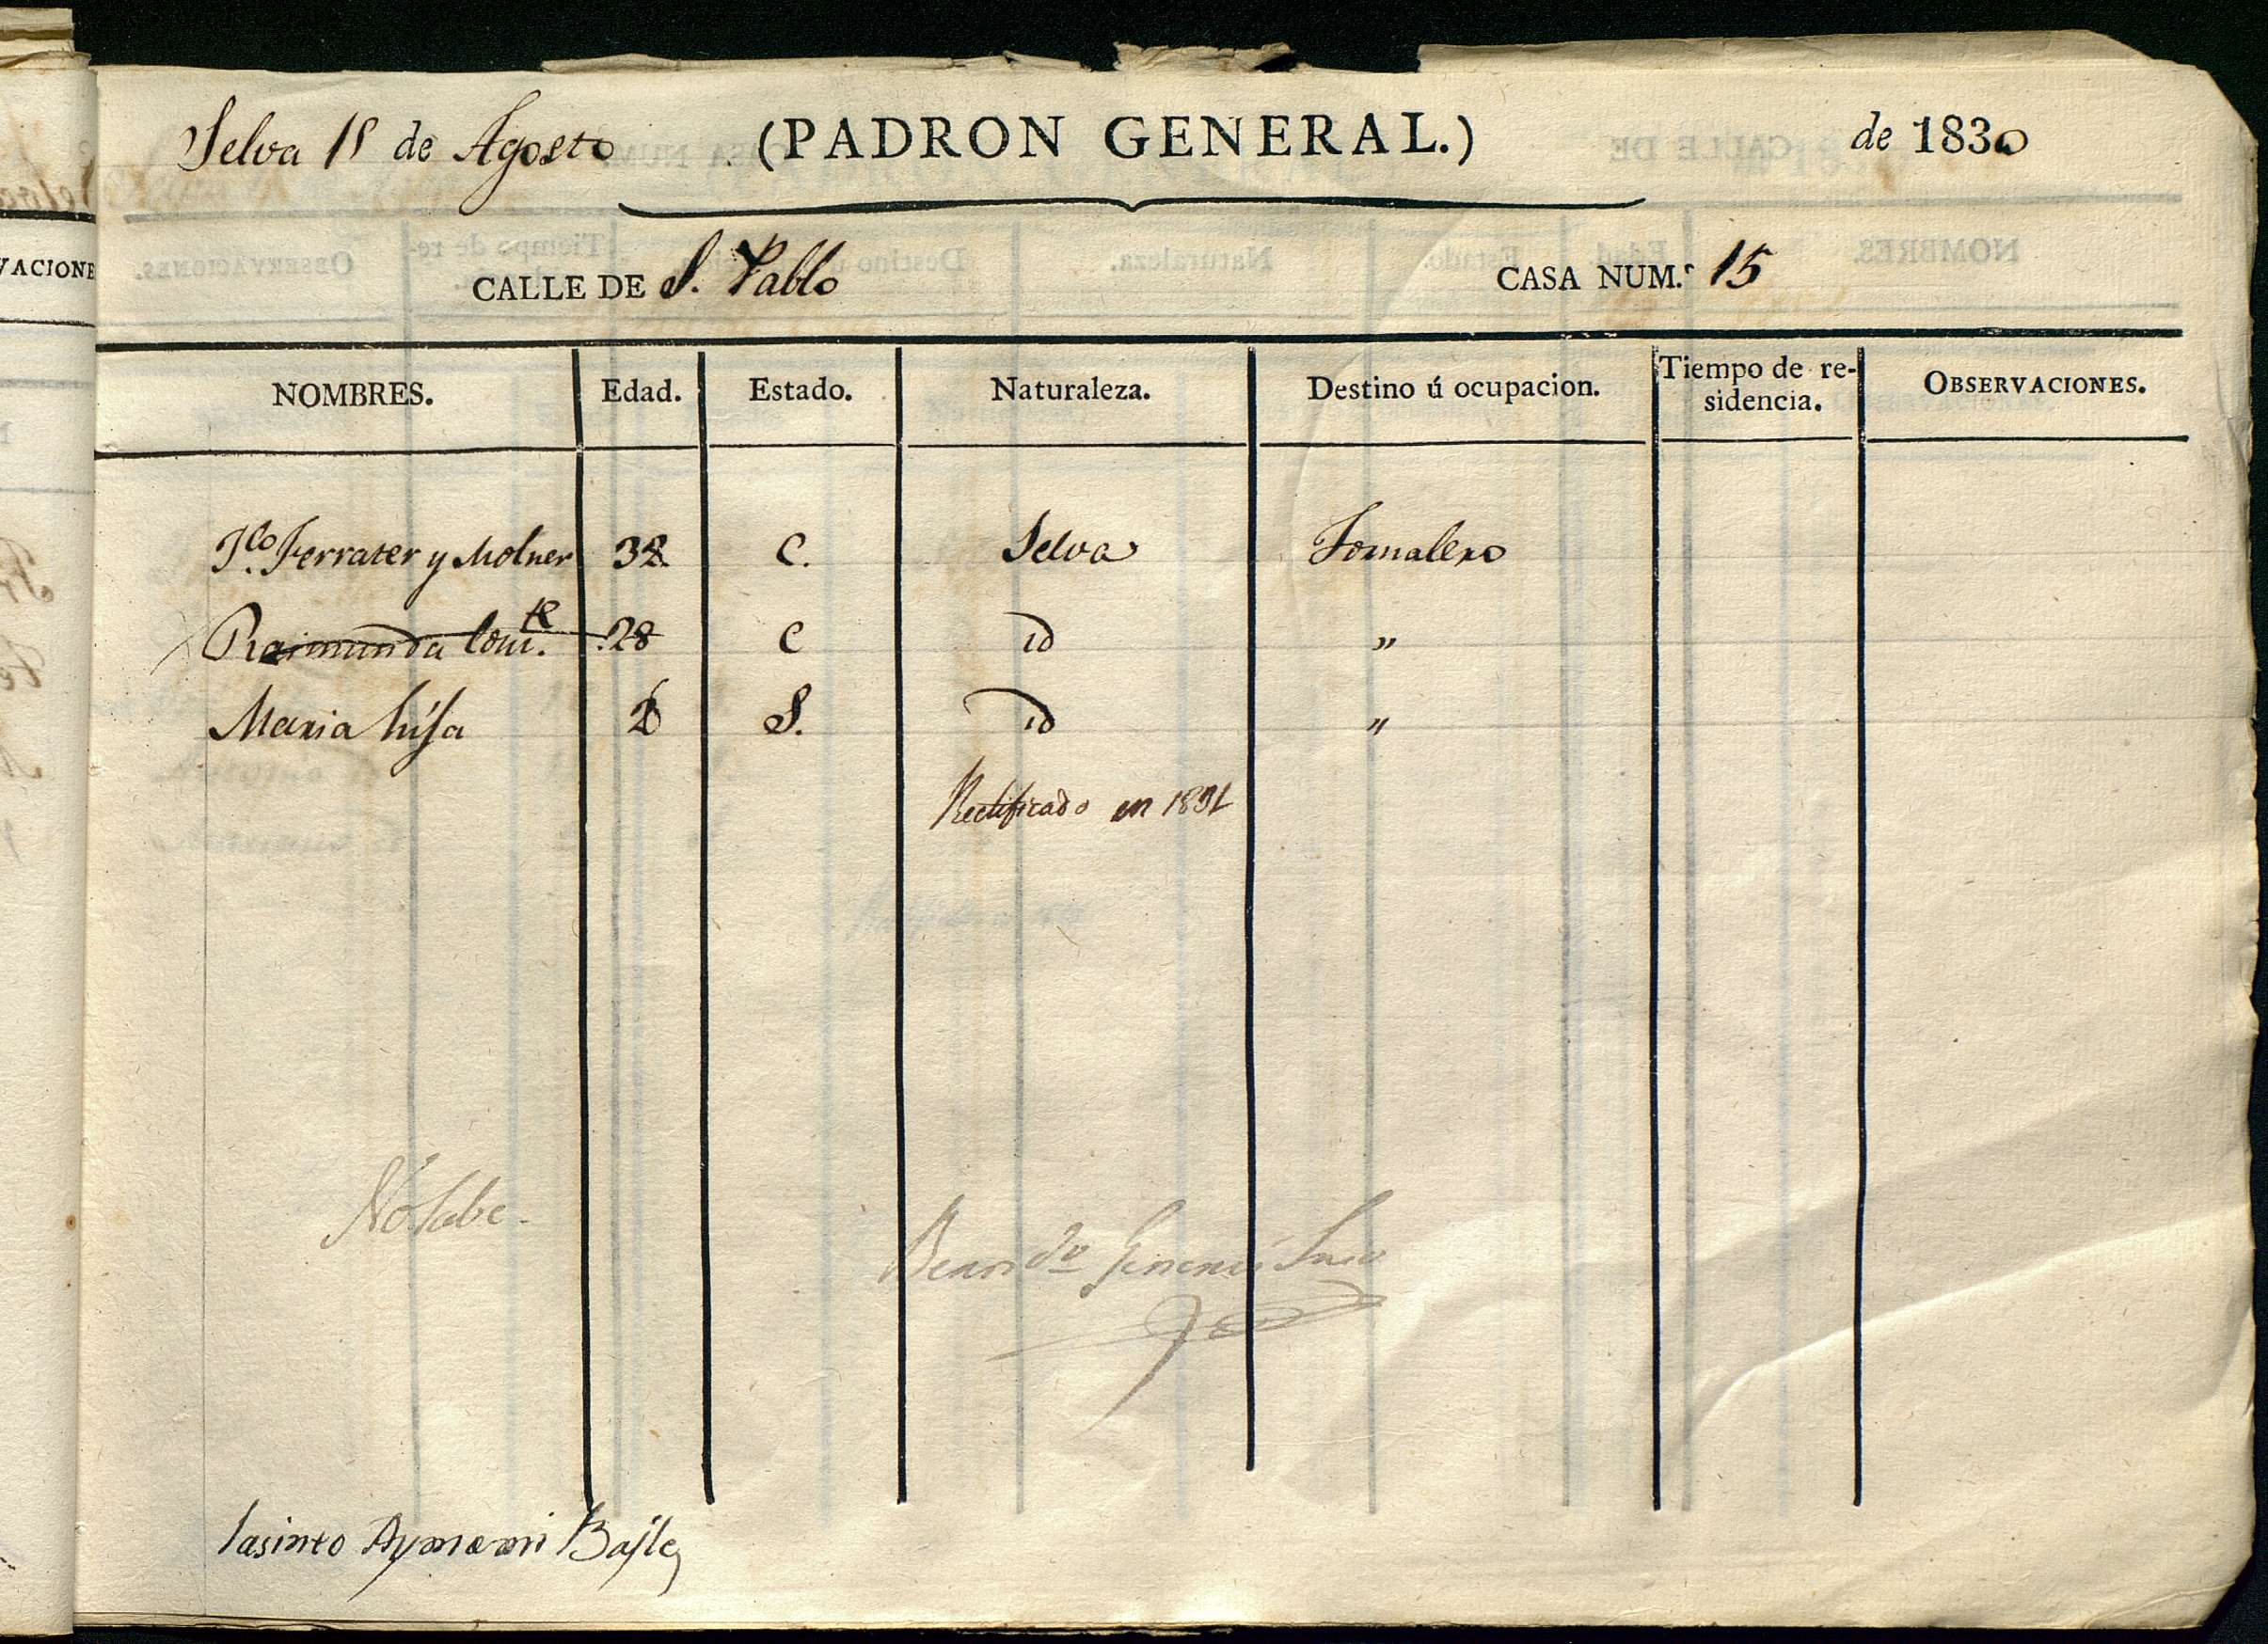 Selva 18 de Agosto (PADRON GENERAL.) de 1830
CALLE DE S. Pablo CASA NUM.º 15
NOMBRES. Edad. Estado. Naturaleza. Destino ú ocupacion. Tiempo de re-
sidencia. OBSERVACIONES.
Ferrater y Molner C. Selva Jornalero
Raimunda 28 C id „
Maria hija S. id „
Rectificado en 1831
No sabe.
Jasinto Aymami Bajle
VACIONE